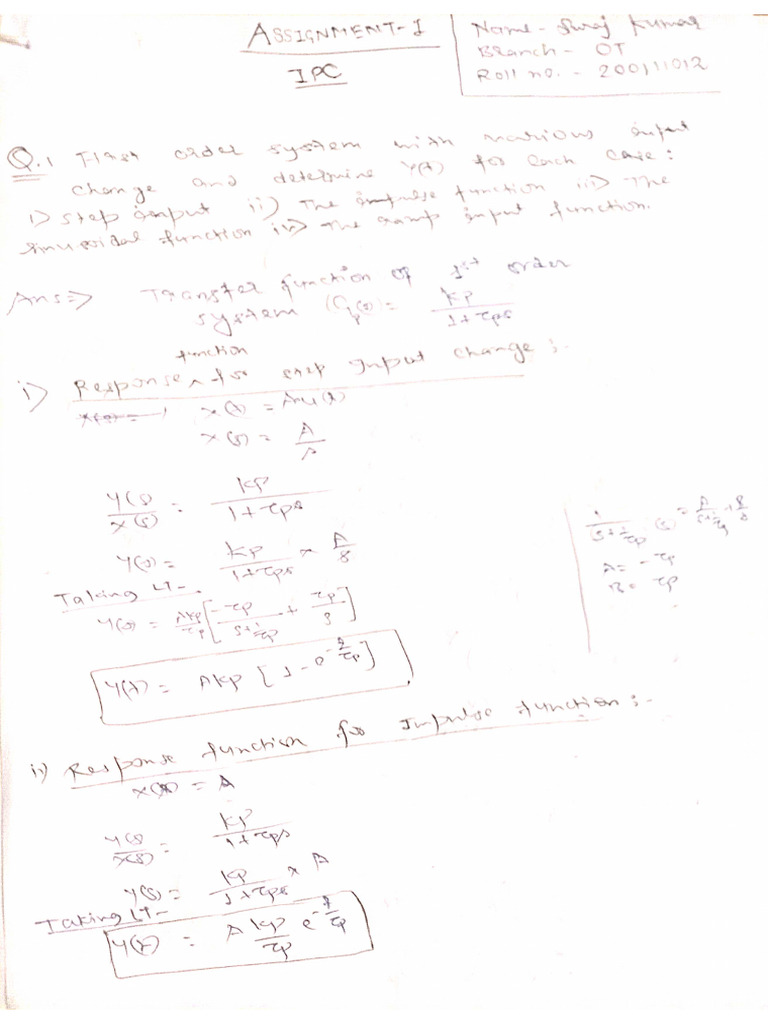 ASSIGNMENT-1
IPC
Name- Suraj Kumar
Branch- OT
Roll no. - 200111012
Q.1 First order system with various input
change and determine Y(t) for each case:
i) Step input ii) The impulse function iii) The
sinusoidal function iv) The ramp input function.
Ans⇒ Transfer function of 1st order
system Gp(s) = kp / 1+τps
i) Response function for step input change :-
x(t) = Au(t)
x(s) = A/s
Y(s)/x(s) = kp / 1+τps
Y(s) = kp / 1+τps × A/s
Taking LT-
Y(s) = Akp/τp [ -τp / s+1/τp + τp/s ]
Y(t) = Akp [ 1 - e^-t/τp ]
1 / (s+1/τp)(s) = A / s+1/τp + B/s
A = -τp
B = τp
ii) Response function for Impulse function :-
x(s) = A
Y(s)/x(s) = kp / 1+τps
Y(s) = kp / 1+τps × A
Taking LT-
Y(t) = A kp/τp e^-t/τp